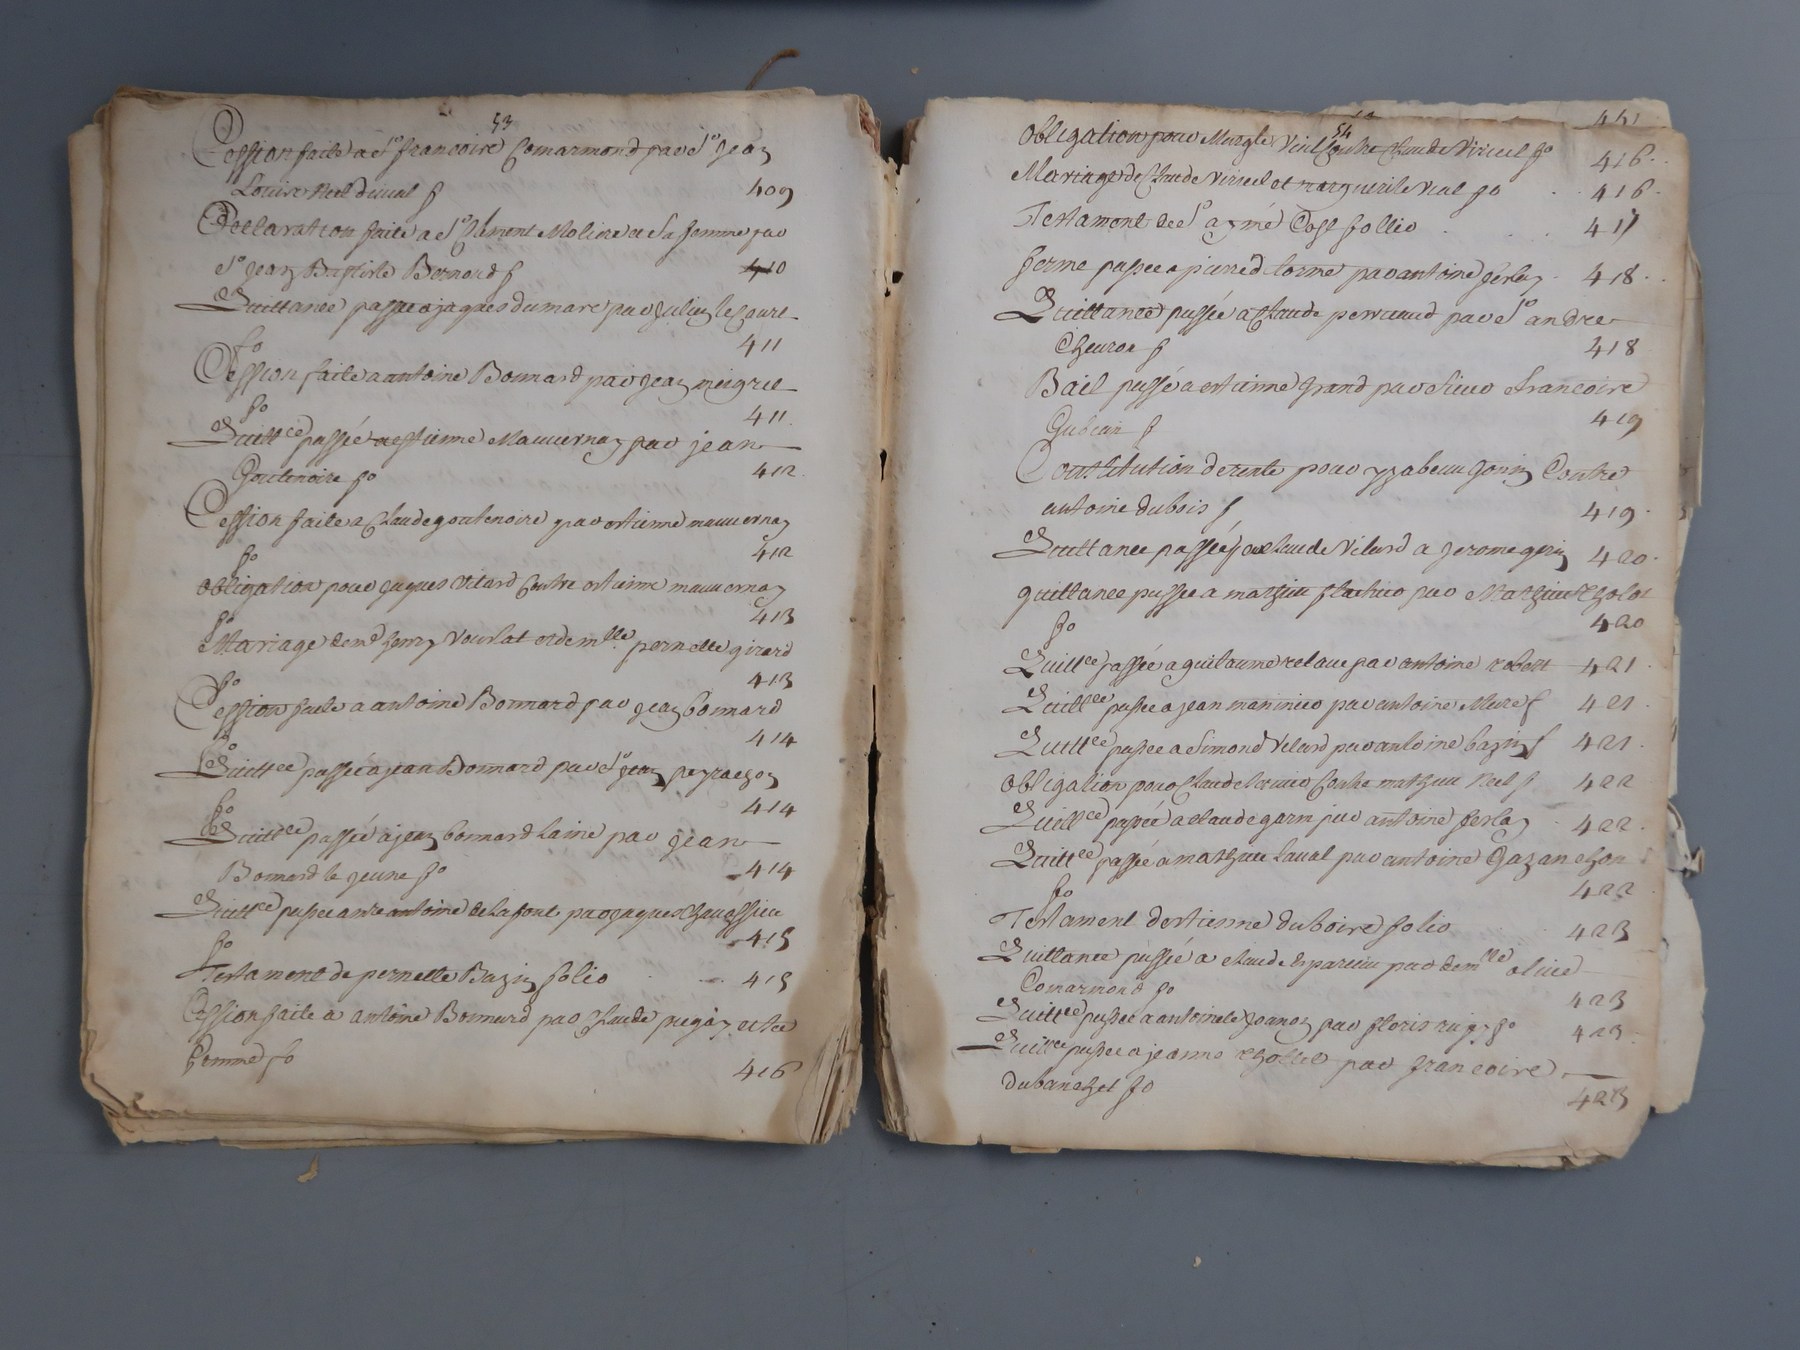 53
Cession faite a Sr françoise Comarmond par Sr Jean
Louis Neel duval f 409
Declaration faite a Sr Clement Moline et Sa femme par
Sr Jean Baptiste Bernard f 410
Quittance passee a jaques dumare par Julien
fo 411
Cession faite a antoine Bonnard par jean neigre
fo 411
Quittce passée a estienne Mauvernay par jean
Goutenoire fo 412
Cession faite a Claude goutenoire par estienne mauvernay
fo 412
obligation pour jaques Vitard Contre estienne mauvernay
fo 413
Mariage de md henry Vourlat et de mlle pernette girard
fo 413
Cession faite a antoine Bonnard par jean bonnard
fo 414
Quittce passée a jean Bonnard par Sr jean
fo 414
Quittce passée a jean bonnard laine par jean
Bonnard le jeune fo 414
Quittce passee a antoine de la font par jaques
fo 415
Testament de pernette Bazin folio 415
Cession faite a antoine Bonnard par Claude et sa
femme fo 416
54
obligation pour Vial Contre Claude Viricel fo 416
Mariage de Claude Viricel et marguerite Vial fo 416
Testament de Sr aymé Cost follio 417
ferme passee a pierre par antoine ferlay 418
Quittance passée a Claude perrenud par Sr andre
Cheuron f 418
Bail passé a estienne grand par Sieur francoise
Gubian f 419
Constitution de rente pour yzabeau gonin Contre
antoine dubois f 419
Quittance passée par Claude Velard a jerome 420
quittance passee a mathieu par Mathieu
fo 420
Quittce passée a guilaume relave par antoine robert 421
Quittce passee a jean par antoine Mure f 421
Quittce passee a Simond Velard par antoine bazin f 421
obligation pour Claude Contre mathieu Neel f 422
Quittce passée a claude garin par antoine ferlay 422
Quittce passée a mathieu laval par antoine Gazanchon
fo 422
Testament destienne duboire folio 423
Quittance passée a claude par demlle olive
Comarmond fo 423
Quittce passee a antoine par floris fo 423
Quittce passee a jeanne par francoise
dubanchet fo 423